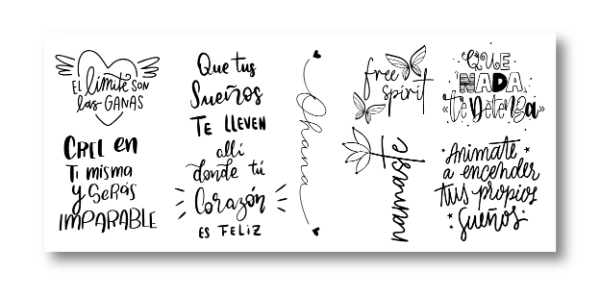 EL límite SON
las GANAS
CREE en
Ti misma
y Serás
IMPARABLE
Que tus
Sueños
TE LLEVEN
allí
donde tú
Corazón
ES FELIZ
Ohana
free
spirit
namaste
QUE
NADA
te Detenga
Anímate
a encender
tus propios
Sueños